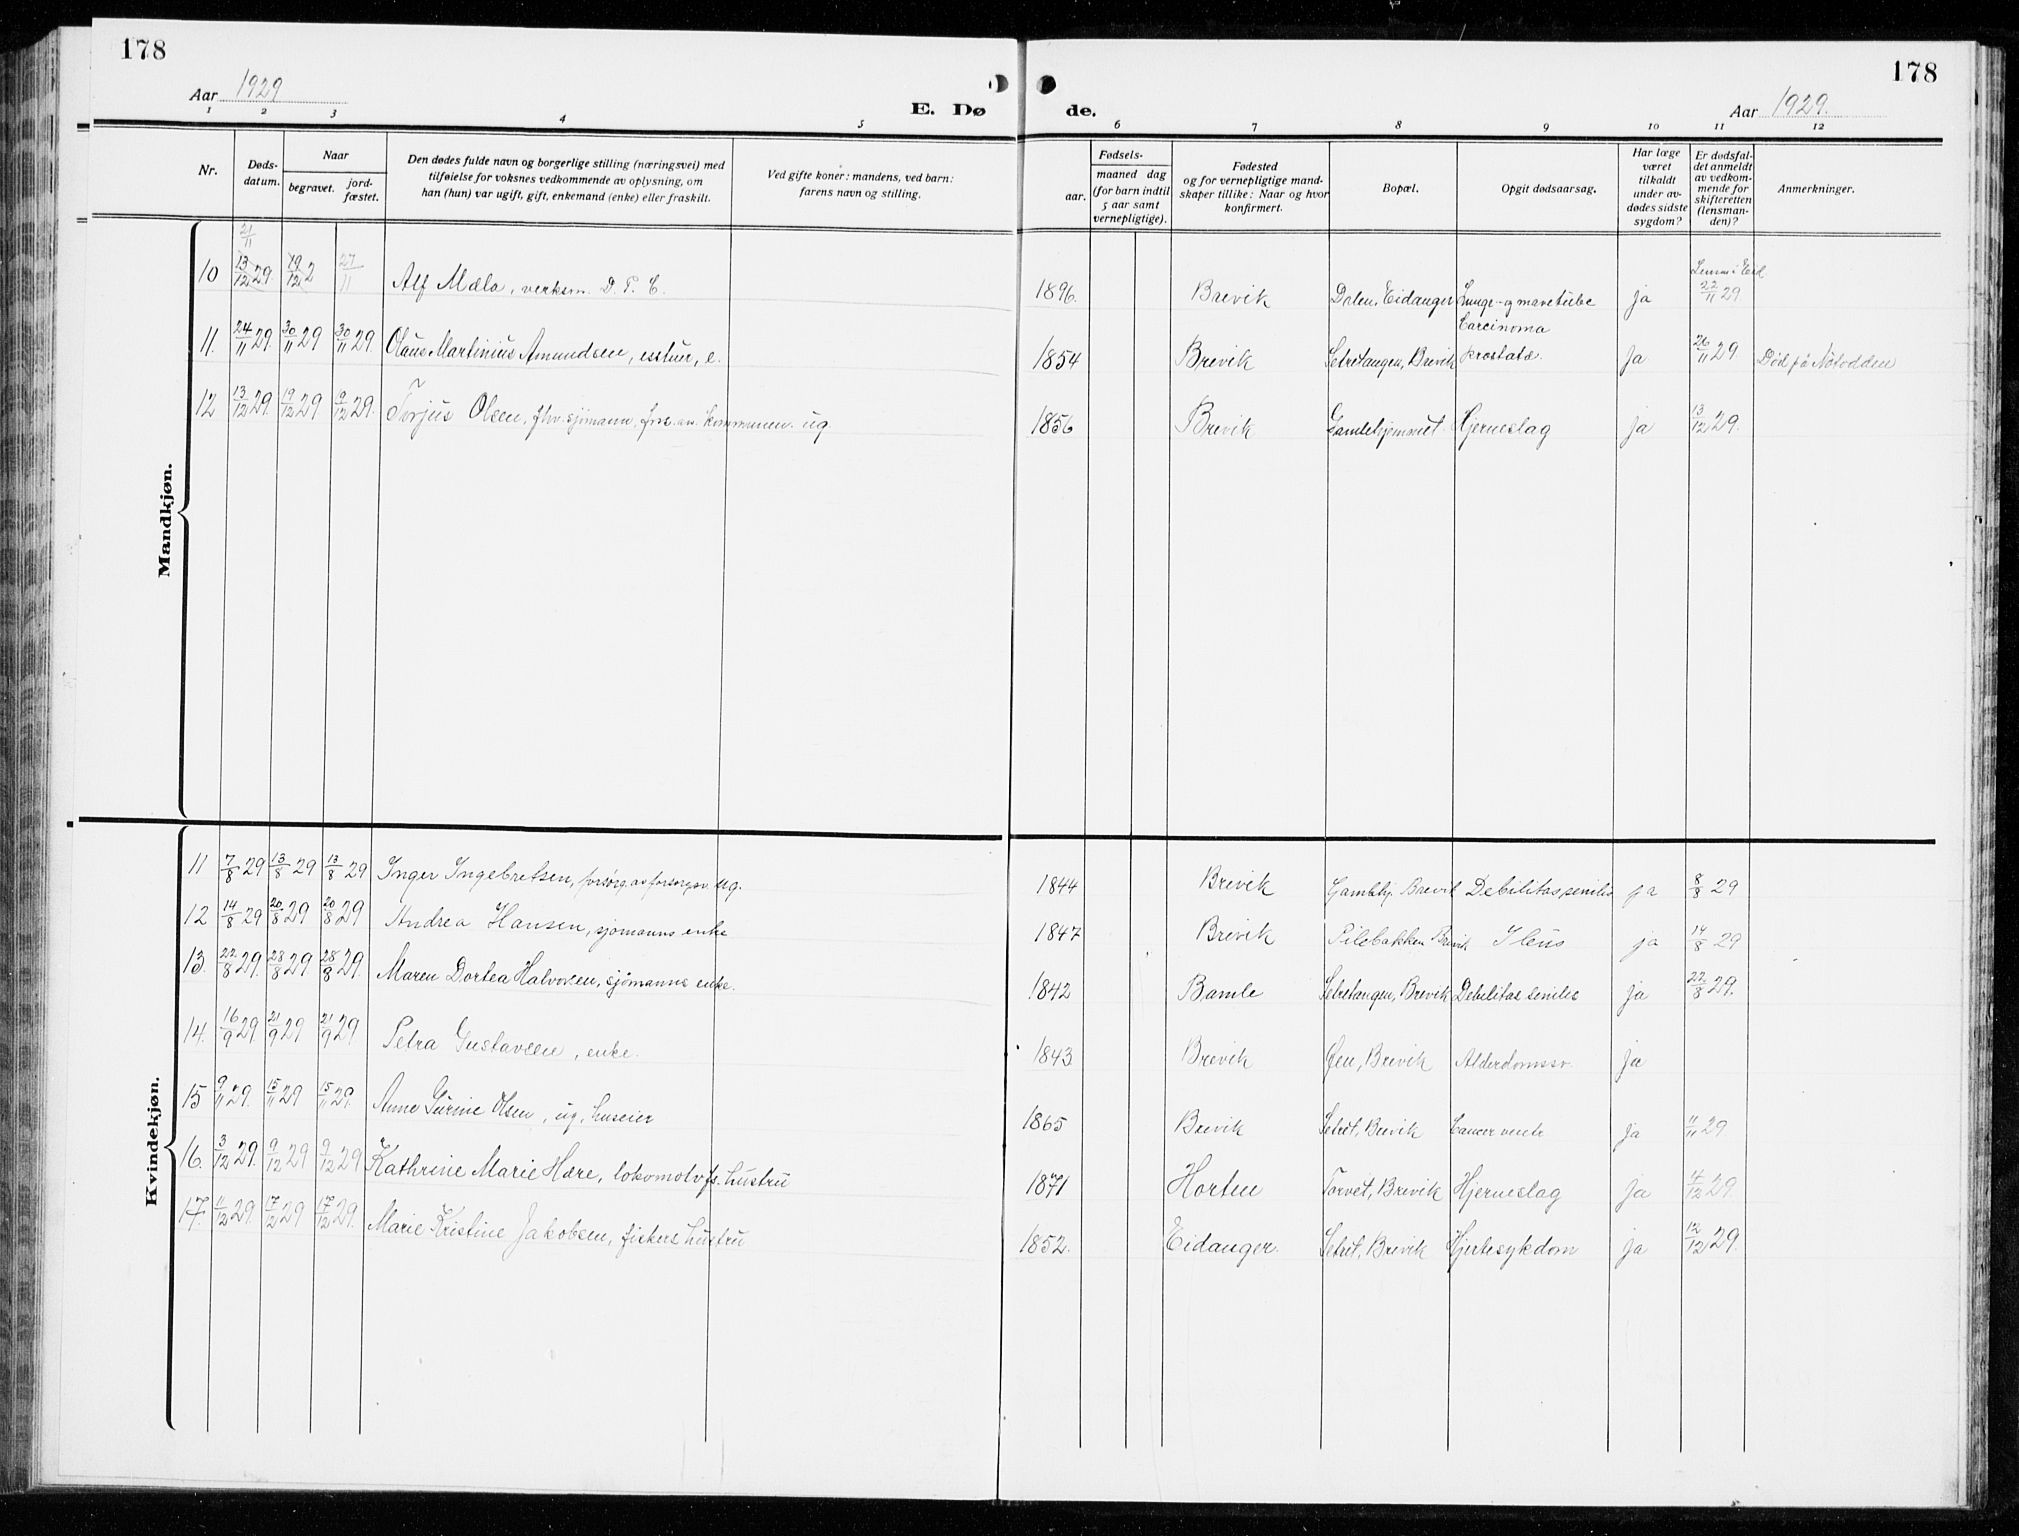 178
178
Aar 1929
Aar 1929.
E. Dø de.
1 2 3 4 5 6 7 8 9 10 11 12
Nr.
Døds-
datum.
Naar
begravet.
jord-
fæstet.
Den dødes fulde navn og borgerlige stilling (næringsvei) med
tilføielse for voksnes vedkommende av oplysning, om
han (hun) var ugift, gift, enkemand (enke) eller fraskilt.
Ved gifte koner: mandens, ved barn:
farens navn og stilling.
Fødsels-
aar.
maaned dag
(for barn indtil
5 aar samt
vernepligtige).
Fødested
og for vernepligtige mand-
skaper tillike: Naar og hvor
konfirmert.
Bopæl.
Opgit dødsaarsag.
Har læge
været
tilkaldt
under av-
dødes sidste
sygdom?
Er dødsfal-
det anmeldt
av vedkom-
mende for
skifteretten
(lensman-
den)?
Anmerkninger.
Mandkjøn.
21/11
10 13/12 29. 19/12 2 27/11 Alf Mæla, verksm. D. P. C. 1896. Brevik Dalen, Eidanger Lunge- og mavetube ja 22/11 29
11. 24/11 29. 30/11 29 30/11 29. Olaus Martinius Amundsen, e. 1854 Brevik Setretangen, Brevik Carcinoma prostatæ. Ja 26/11 29. Død på Notodden
12 13/12 29. 19/12 29 19/12 29. Torjus Olsen, fhv. sjömann, kommunen. ug 1856 Brevik Gamlehjemmet. Hjerneslag ja 13/12 29.
Kvindekjøn.
11 7/8 29 13/8 29 13/8 29 Inger Ingebretsen, forsørg. av forsorgsv. ug. 1844 Brevik Gamlehj. Brevik Debilitas senilis ja 8/8 29
12 14/8 29 20/8 29 20/8 29 Andrea Hansen, sjömanns enke 1847 Brevik Pilebakken Brevik Ileus ja 14/8 29
13. 22/8 29. 28/8 29 28/8 29. Maren Dortea Halvorsen, sjömanns enke. 1842 Bamle Setretangen, Brevik Debilitas senilis ja 22/8 29.
14. 16/9 29. 21/9 29 21/9 29 Petra Gustavsen, enke. 1843 Brevik Øen, Brevik Alderdomssv. ja
15 9/11 29. 15/11 29 15/11 29. Anne Gurine Olsen, ug, huseier 1865 Brevik Setret, Brevik Cancer ja 11/11 29
16. 3/12 29. 9/12 29 9/12 29 Kathrine Marie Hære, lokomotvfs. hustru 1871 Horten Torvet, Brevik Hjerneslag Ja 4/12 29.
17. 11/12 29. 17/12 29 17/12 29. Marie Kristine Jakobsen, fiskers hustru 1852. Eidanger. Setret, Brevik Hjertesykdom ja 12/12 29.